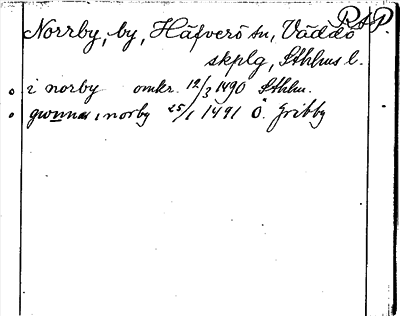 RAP.
Norrby, by, Häfverö sn, Väddö
skplg, Sthlms l.
i norby omkr. 12/3 1490 Sthlm.
gwnnar i norby 25/1 1491 Ö. Gribby